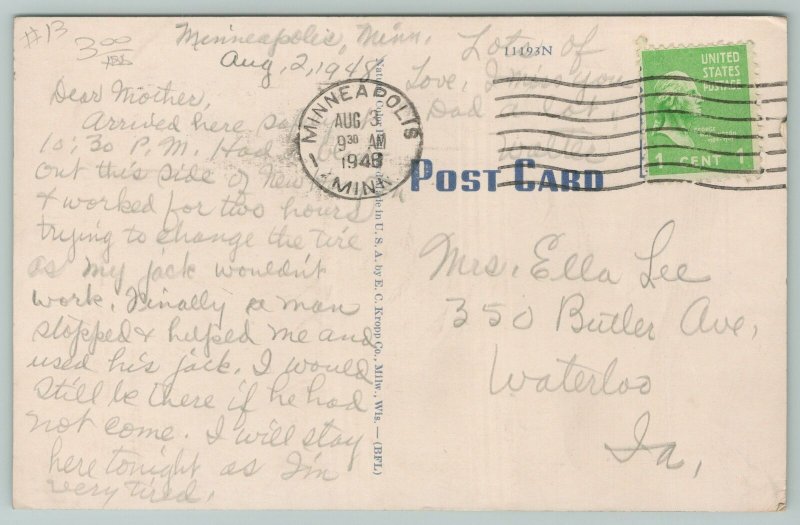 #13
3.00
Minneapolis, Minn.
Aug, 2, 1948
Dear Mother,
Arrived here
10:30 P.M. Had
out this side of New
& worked for two hours
trying to change the tire
as my jack wouldn't
work. Finally a man
stopped & helped me and
used his jack. I would
still be there if he had
not come. I will stay
here tonight as I'm
very tired.
Lots of
Love, I miss you
Dad a lot,
Walter
MINNEAPOLIS
AUG 3
9 30 AM
1948
MINN.
11193N
UNITED
STATES
POSTAGE
1 CENT 1
POST CARD
Made in U. S. A. by E. C. Kropp Co., Milw., Wis.—(BFL)
Mrs. Ella Lee
350 Butler Ave,
Waterloo
Ia,